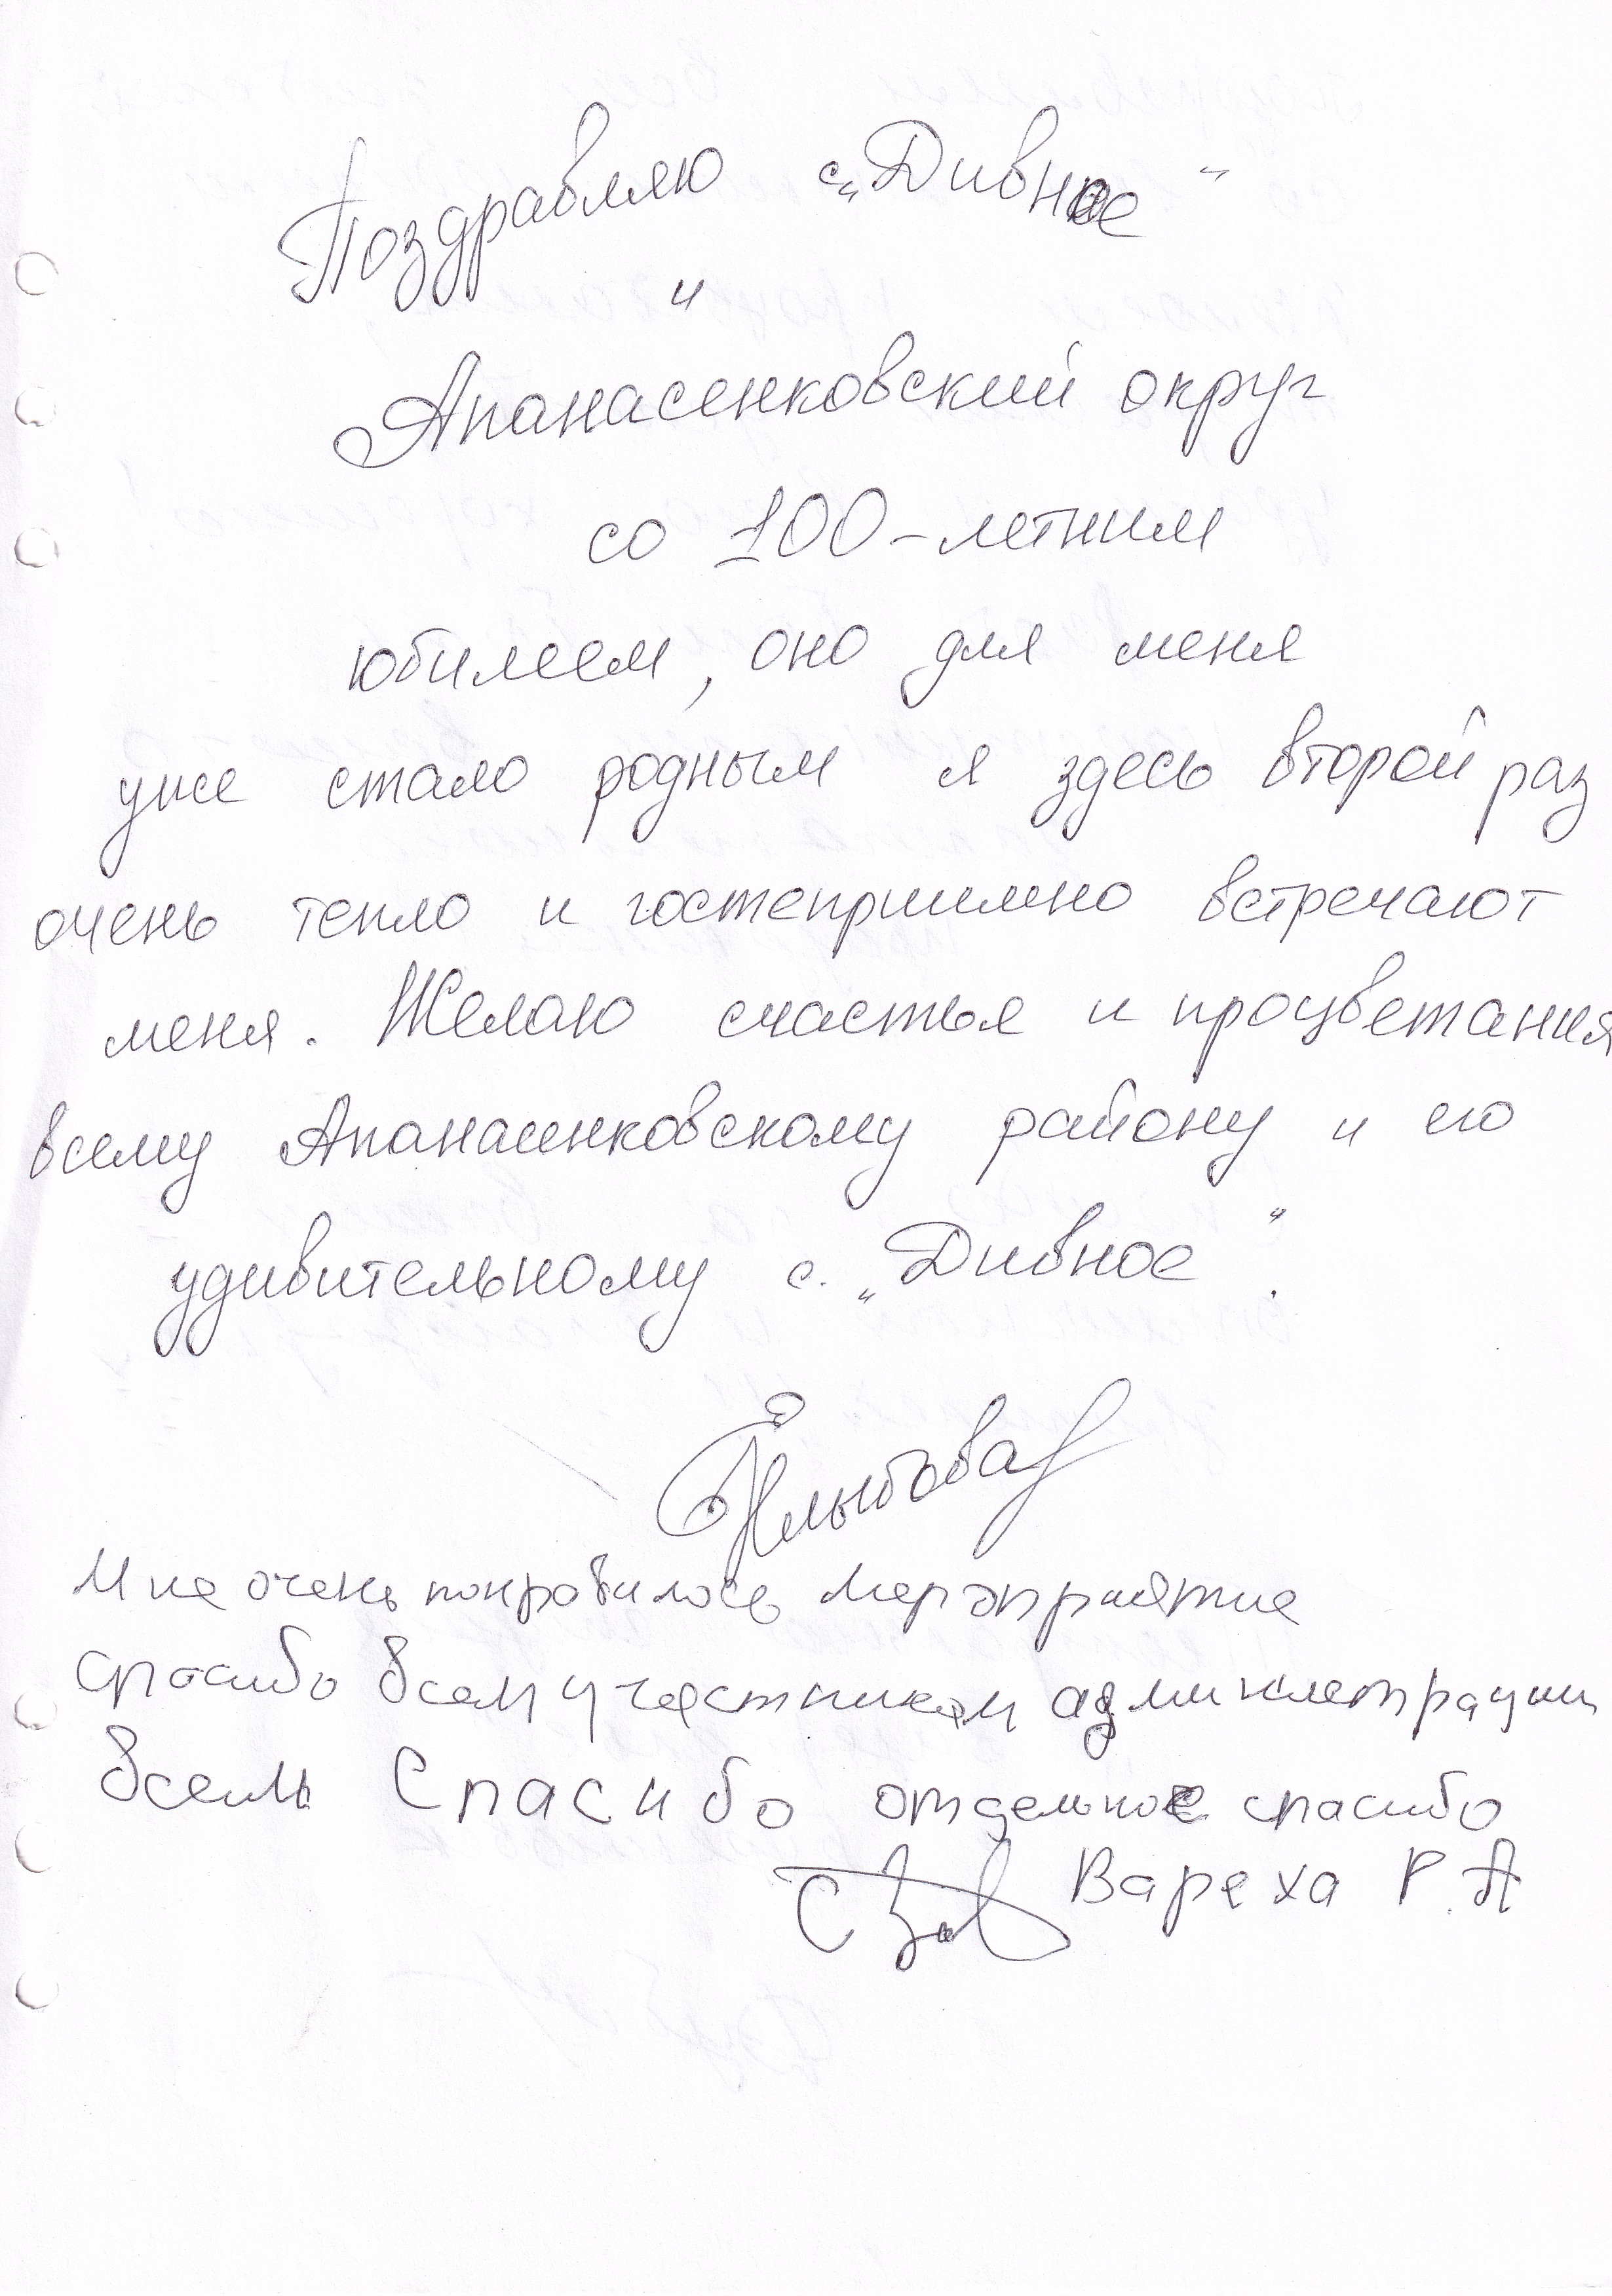 Поздравляю с „Дивное"
и
Апанасенковский округ
со 100-летним
юбилеем, оно для меня
уже стало родным я здесь второй раз
очень тепло и гостеприимно встречают
меня. Желаю счастья и процветания
всему Апанасенковскому району и его
удивительному с. „Дивное".
Мне очень понравилось мерэприятие
спосибо всем участникам администрации
всемь Спасибо отдельное спасибо
Вареха Р.А